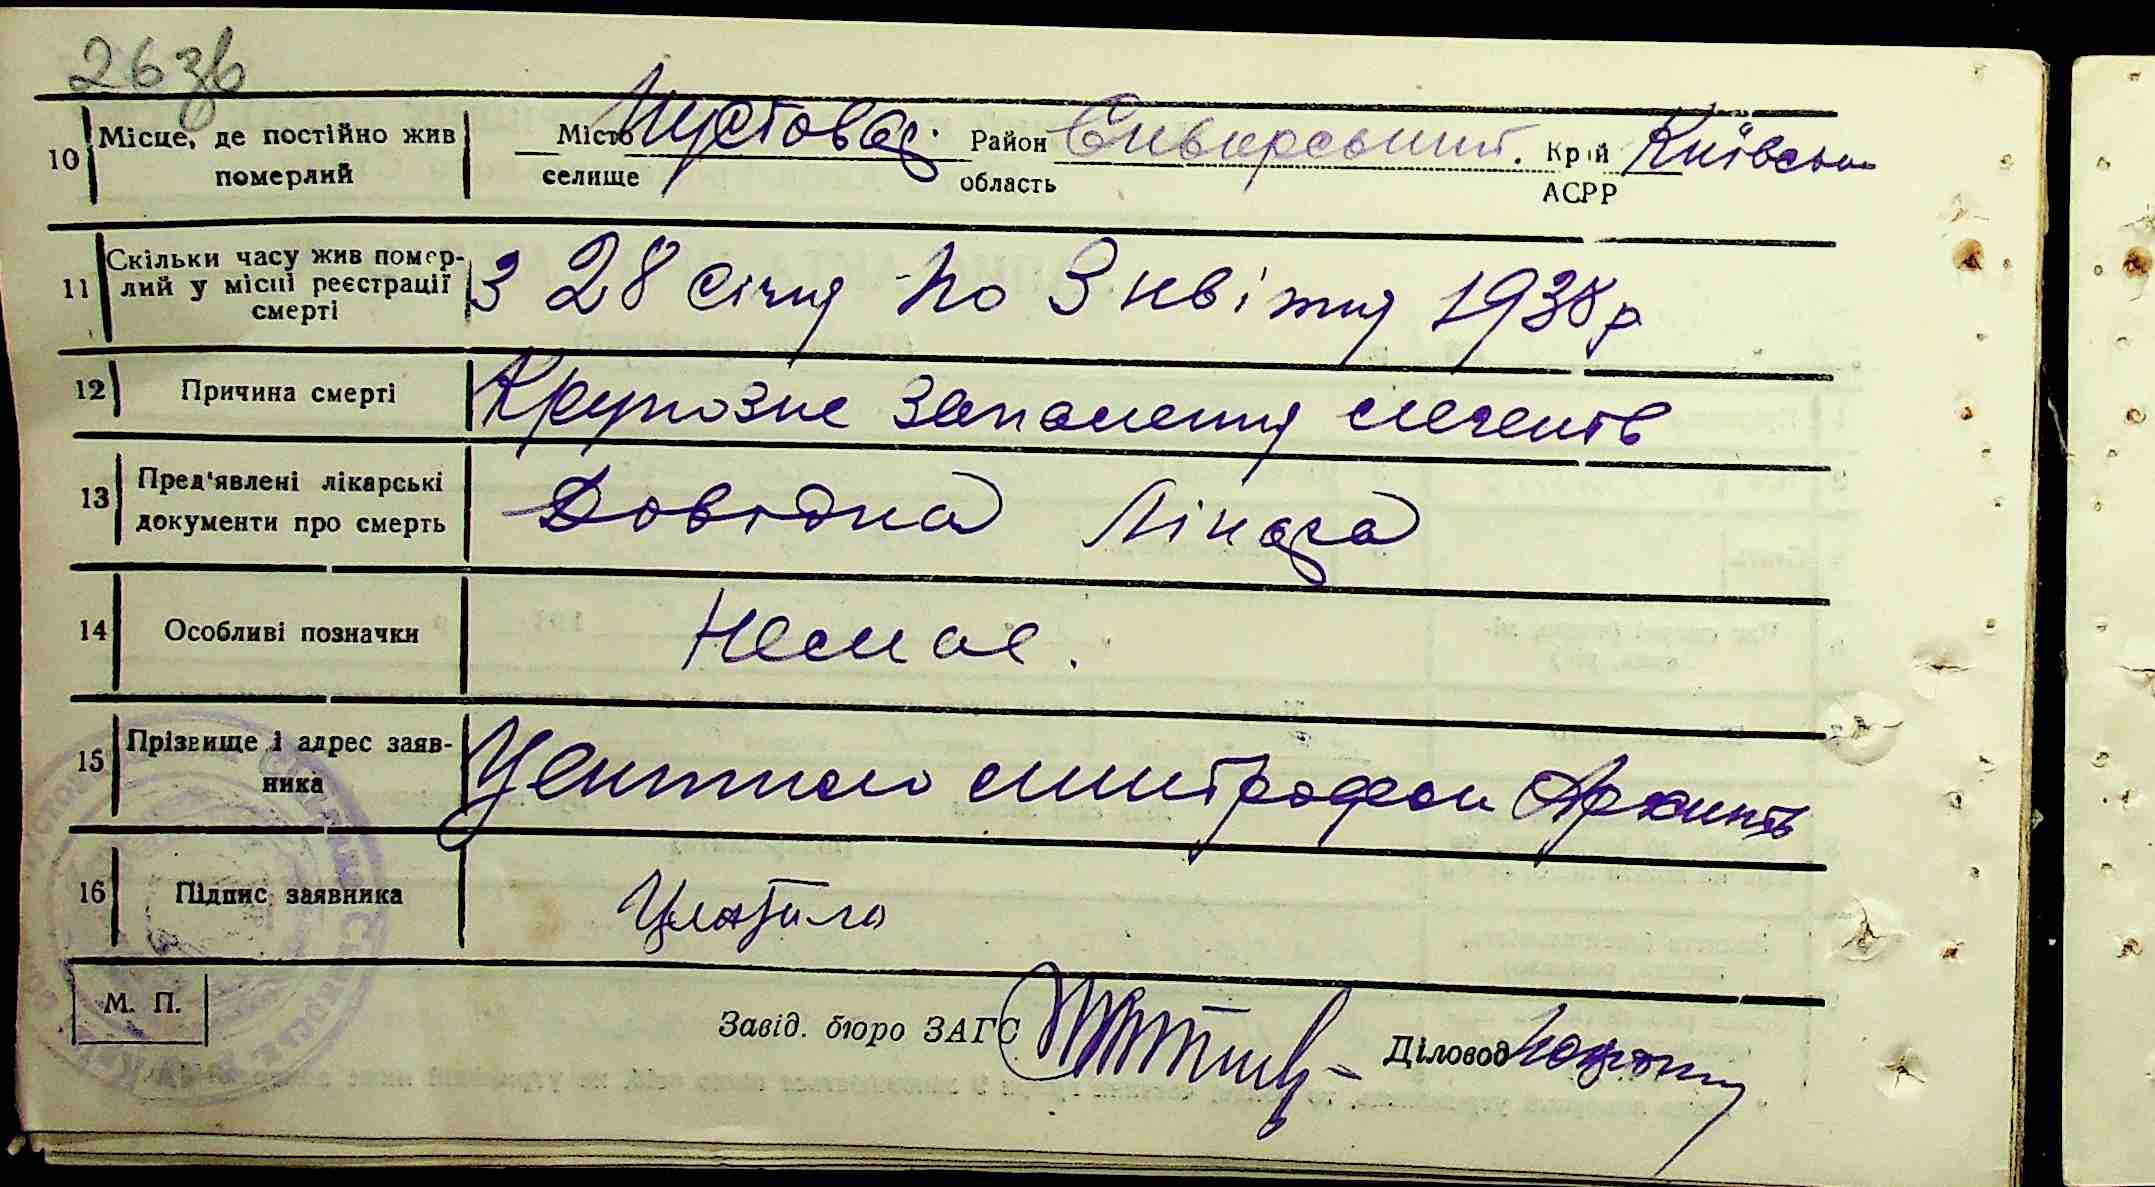 26 зв
10 Місце, де постійно жив померлий Місто селище Шустовая. Район область Сквирський. Край АСРР Київськ
11 Скільки часу жив померлий у місці реєстрації смерті З 28 січня по 3 квітня 1938 р
12 Причина смерті Крупозне запалення легенів
13 Пред'явлені лікарські документи про смерть Довідка Лікаря
14 Особливі позначки Немає.
15 Прізвище і адрес заявника Центило митрофан
16 Підпис заявника Центило
М. П.
Завід. бюро ЗАГС Діловод